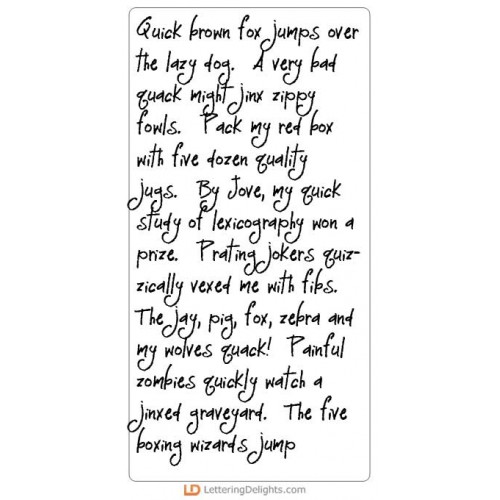 Quick brown fox jumps over
the lazy dog. A very bad
quack might jinx zippy
fowls. Pack my red box
with five dozen quality
jugs. By Jove, my quick
study of lexicography won a
prize. Prating jokers quiz-
zically vexed me with fibs.
The jay, pig, fox, zebra and
my wolves quack! Painful
zombies quickly watch a
jinxed graveyard. The five
boxing wizards jump
LD LetteringDelights.com